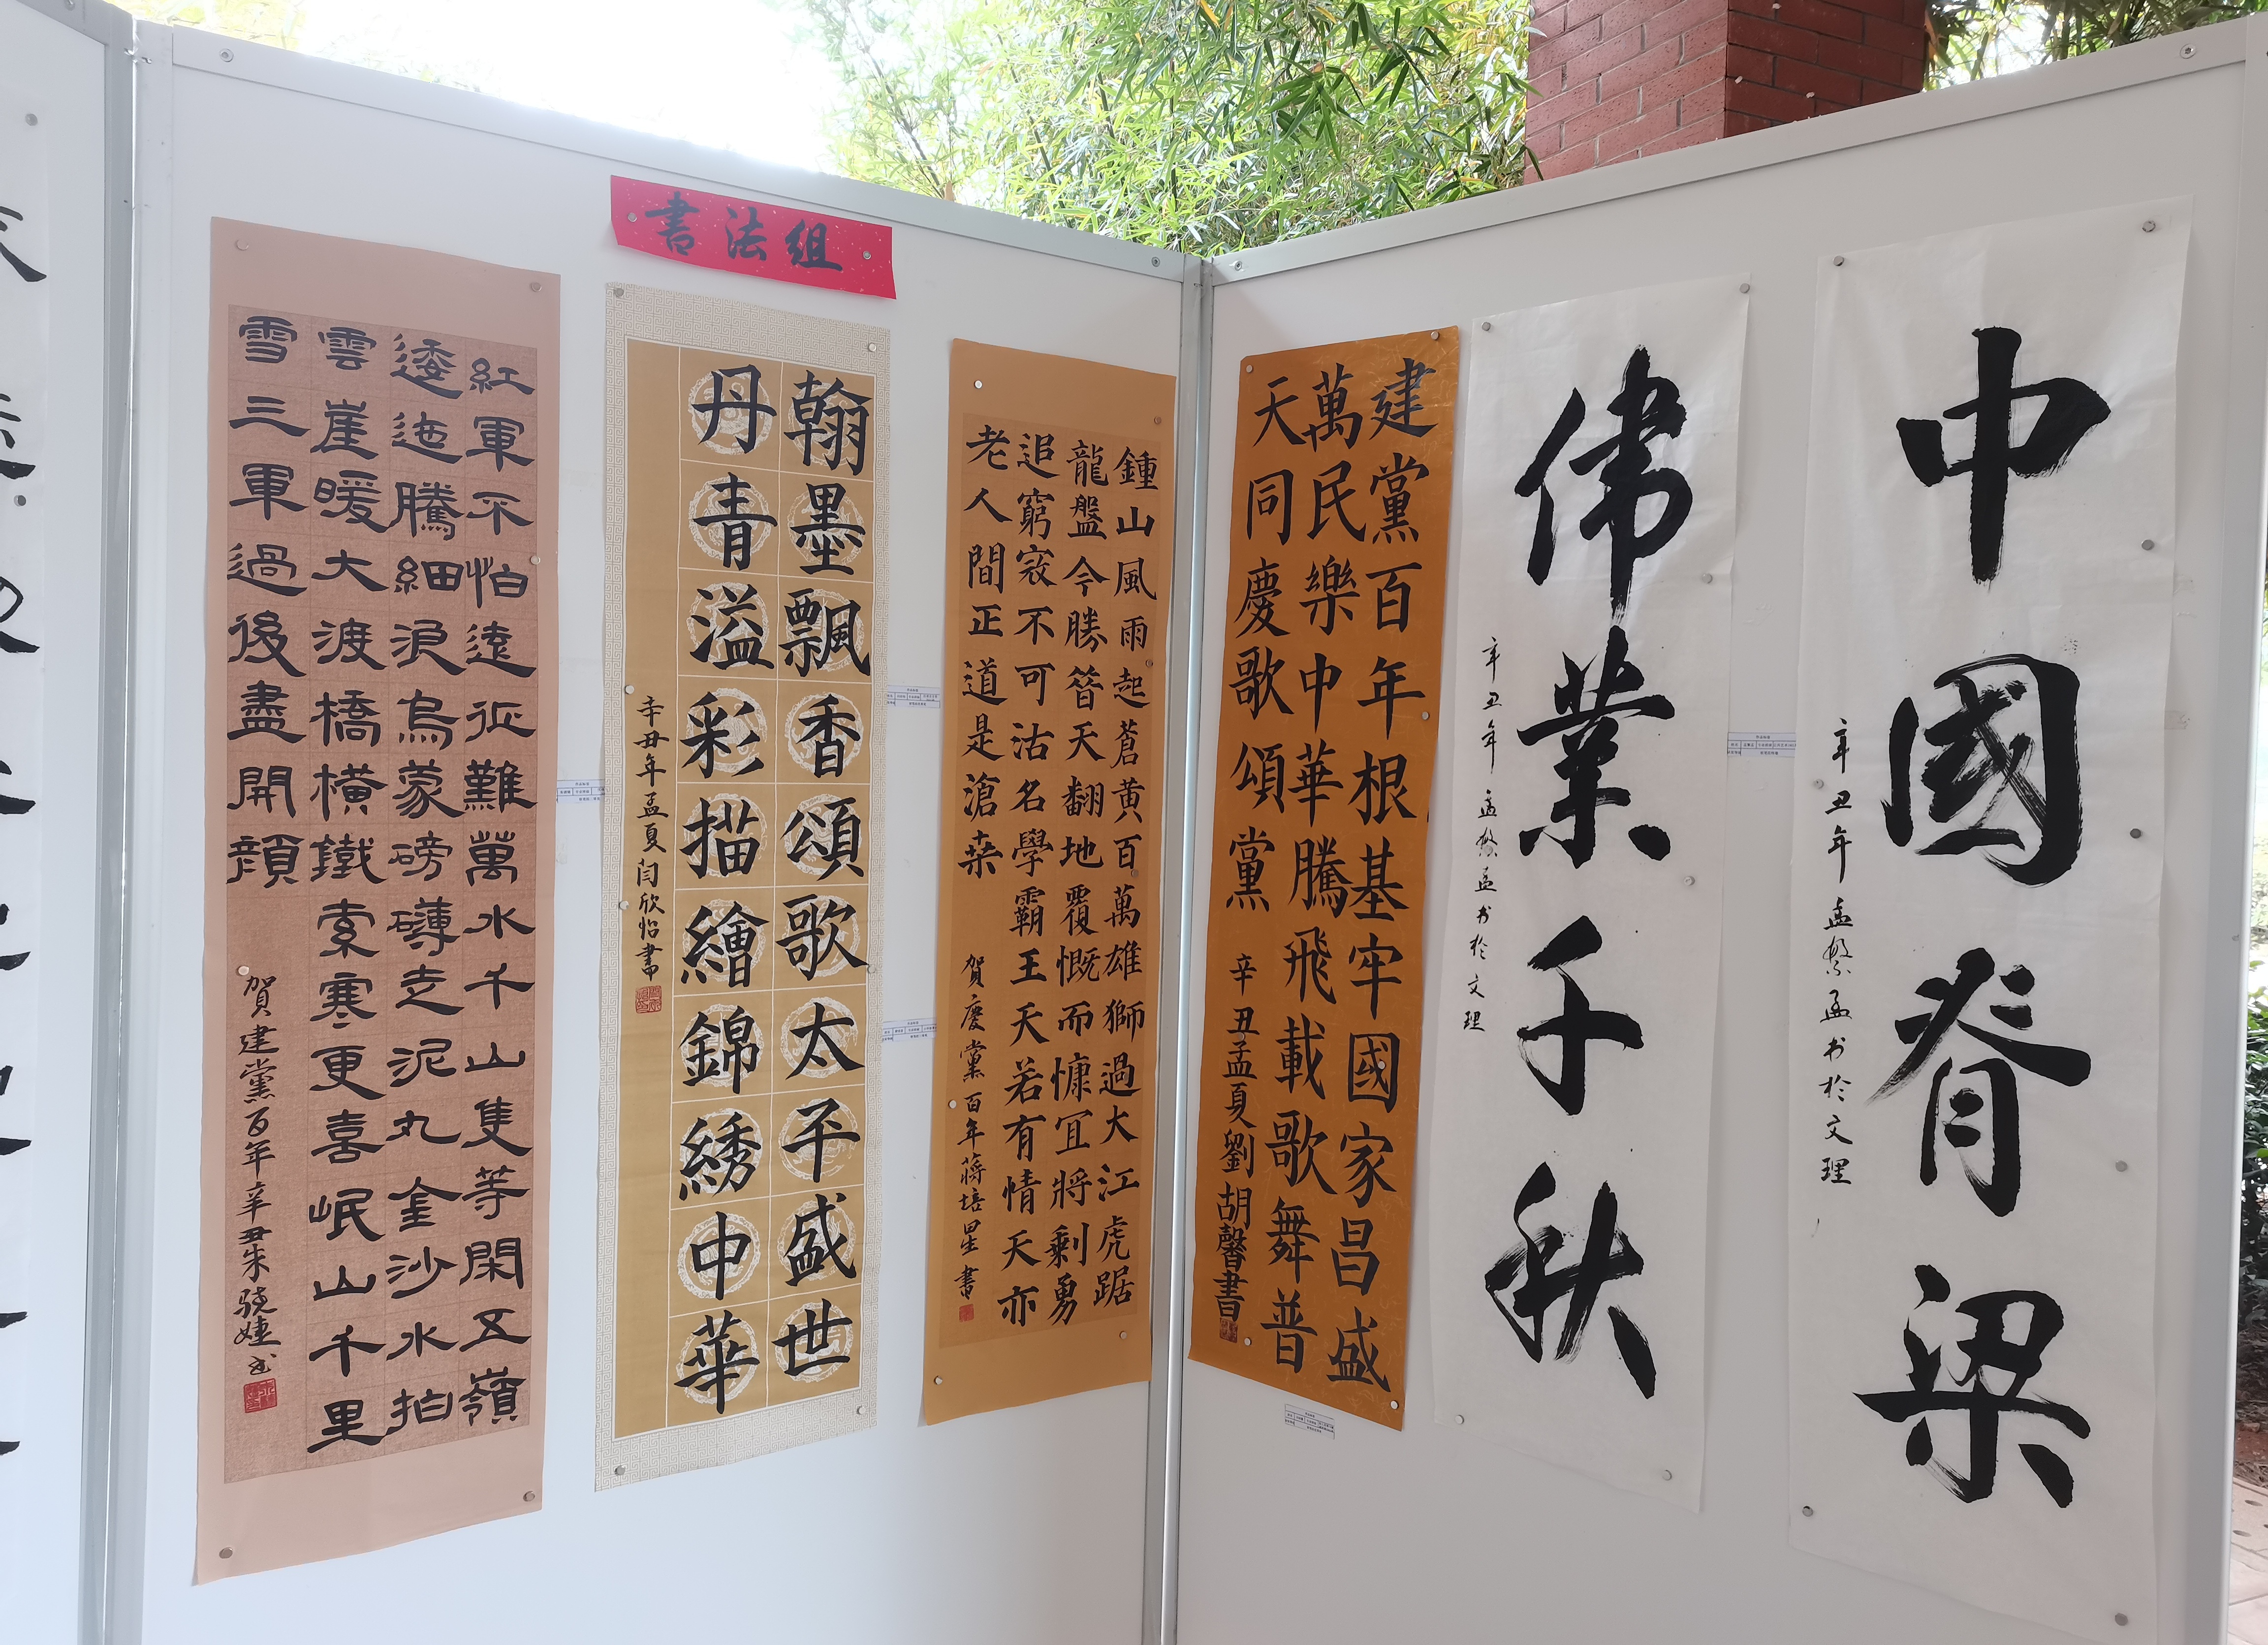 書法组
紅軍不怕遠征難萬水千山隻等閑五嶺
逶迤騰細浪烏蒙磅礴走泥丸金沙水拍
雲崖暖大渡橋橫鐵索寒更喜岷山千里
雪三軍過後盡開顔
賀建黨百年辛丑朱骁婕书
翰墨飄香頌歌太平盛世
丹青溢彩描繪錦綉中華
辛丑年孟夏闫欣怡書
鍾山風雨起蒼黄百萬雄獅過大江虎踞
龍盤今勝昔天翻地覆慨而慷宜將剩勇
追窮寇不可沽名學霸王天若有情天亦
老人間正道是滄桑
賀慶黨百年蔣培星書
建黨百年根基牢國家昌盛
萬民樂中華騰飛載歌舞普
天同慶歌頌黨
辛丑孟夏劉胡馨書
偉業千秋
辛丑年孟繁孟书於文理
中國脊梁
辛丑年孟繁孟书於文理